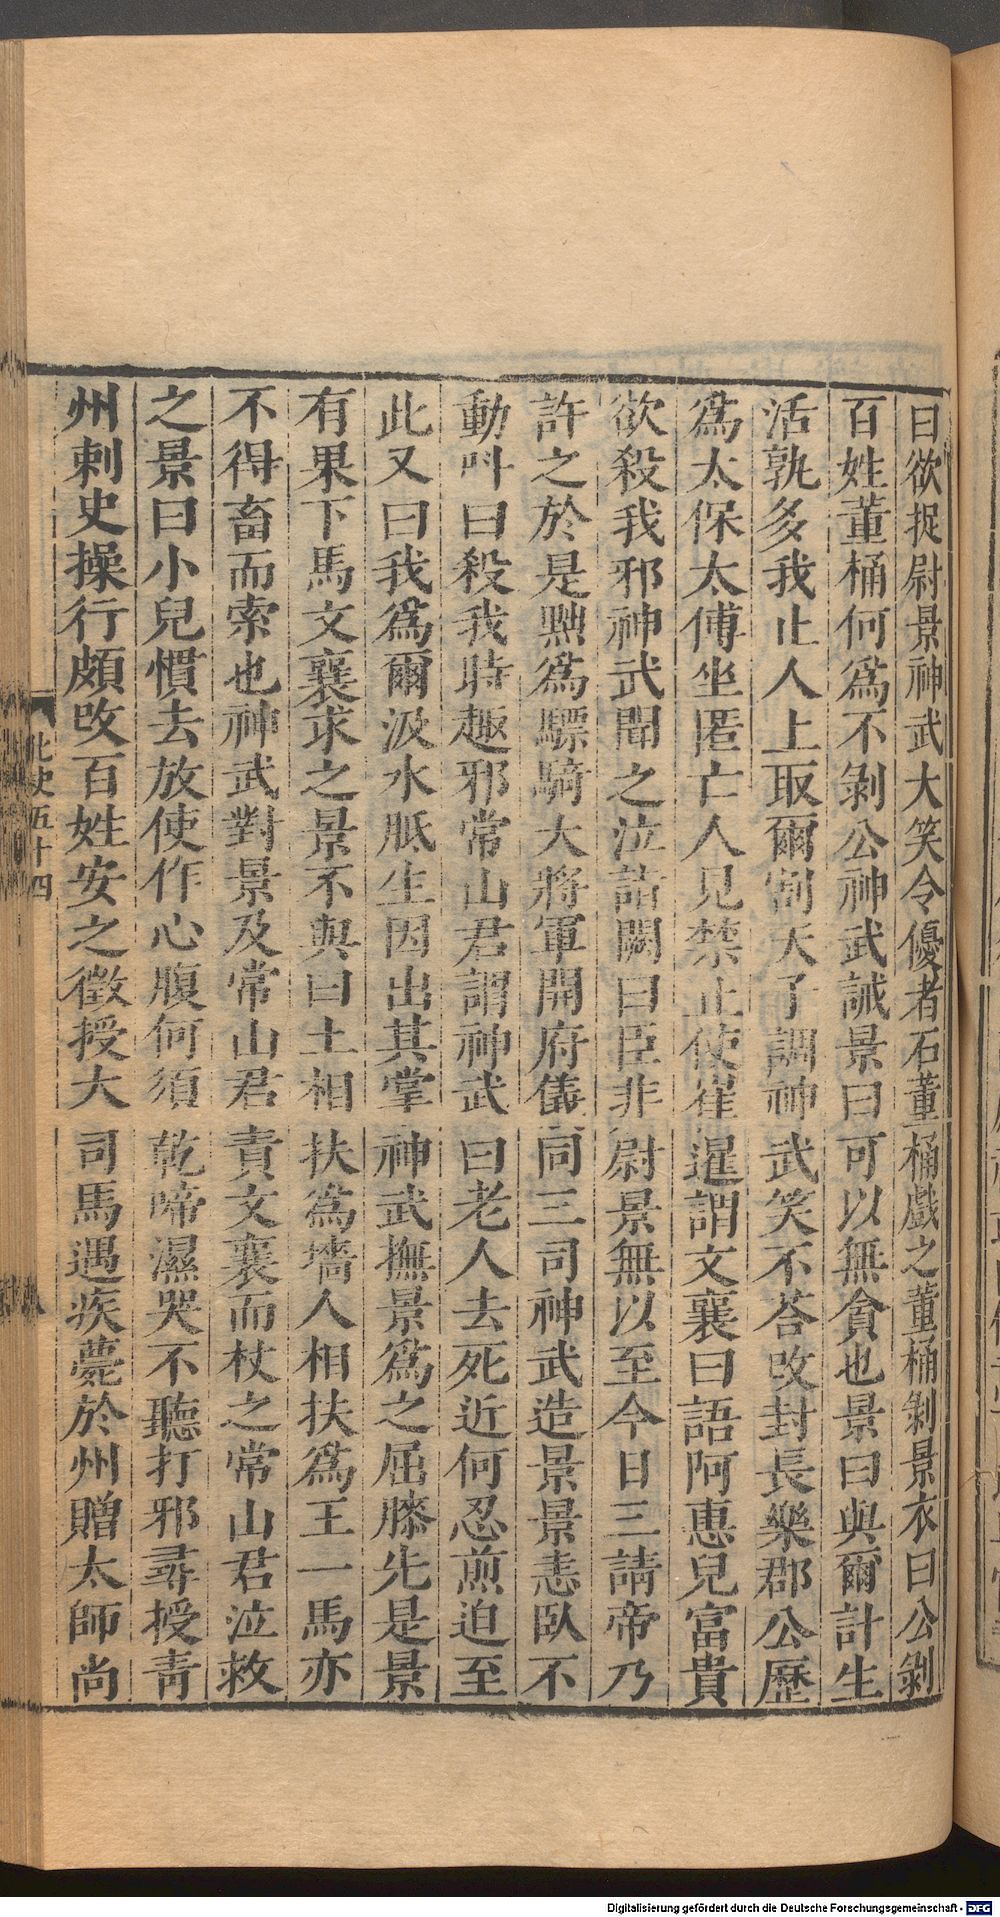 曰欲捉尉景神武大笑令優者石董桶戲之董桶剝景衣曰公剝
百姓董桶何爲不剝公神武誡景曰可以無貪也景曰與爾計生
活孰多我止人上取爾割天子調神武笑不荅改封長樂郡公歷
爲太保太傅坐匿亡人見禁止使崔暹謂文襄曰語阿惠兒富貴
欲殺我邪神武聞之泣詣闕曰臣非尉景無以至今日三請帝乃
許之於是黜爲驃騎大將軍開府儀同三司神武造景景恚臥不
動呌曰殺我時趣邪常山君謂神武曰老人去死近何忍煎迫至
此又曰我爲爾汲水胝生因出其掌神武撫景爲之屈膝先是景
有果下馬文襄求之景不與曰土相扶爲墻人相扶爲王一馬亦
不得畜而索也神武對景及常山君責文襄而杖之常山君泣救
之景曰小兒慣去放使作心腹何須乾啼濕哭不聽打邪尋授青
州刺史操行頗改百姓安之徵授大司馬遇疾薨於州贈太師尚
北史五十四
八
Digitalisierung gefördert durch die Deutsche Forschungsgemeinschaft - DFG